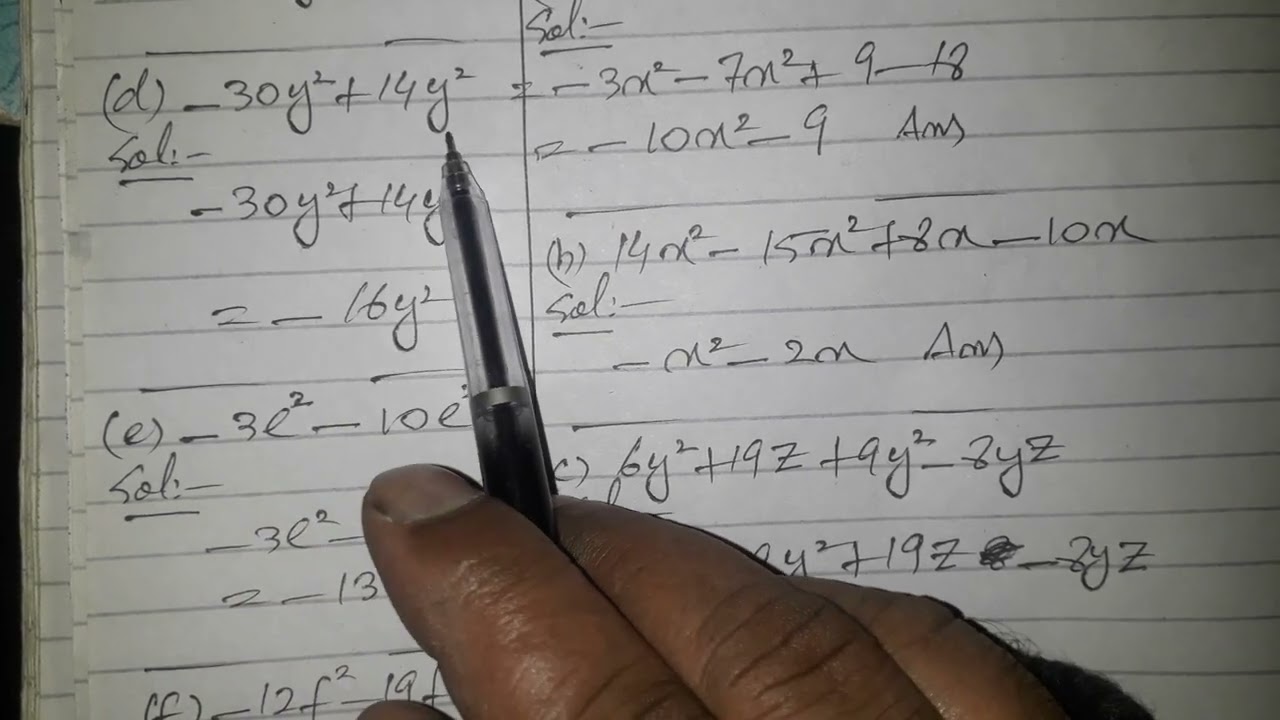 (d) -30y²+14y²
Sol:-
-30y²+14y
= -16y²
(e) -3e² - 10e²
Sol:-
-3e² -
= -13
(f) -12f² -19f
Sol:-
= -3x² - 7x² + 9 - 18
= -10x² - 9 Ans
(b) 14x² - 15x² + 8x - 10x
Sol:-
-x² - 2x Ans
c) 6y² + 19z + 9y² - 8yz
y² + 19z - 8yz